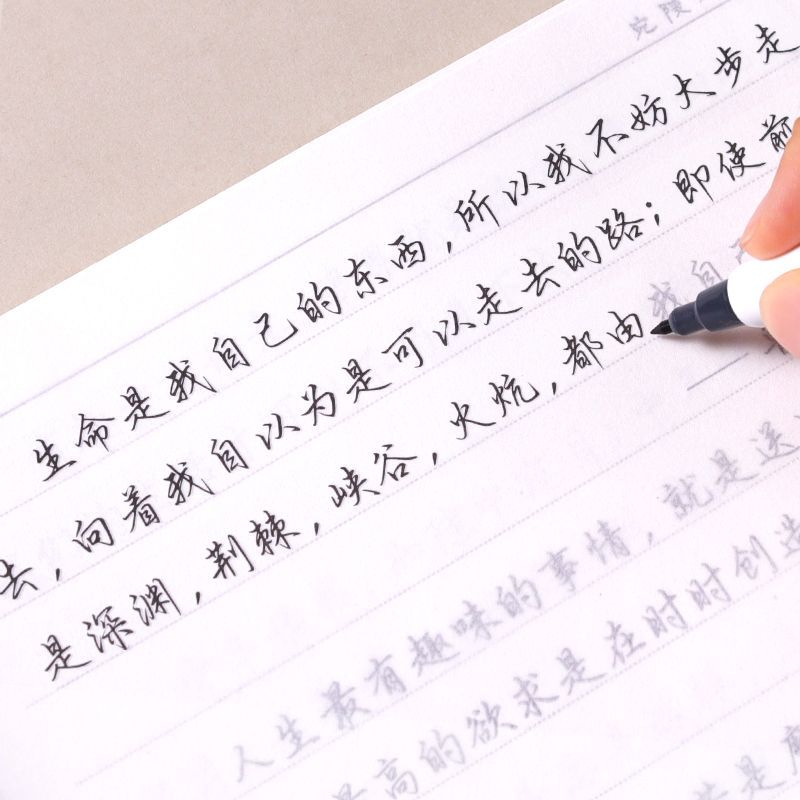 宛陵
生命是我自己的东西，所以我不妨大步走
去，向着我自以为是可以走去的路；即使前
是深渊，荆棘，峡谷，火炕，都由我自
——
人生最有趣味的事情，就是送
最高的欲求是在时时创造